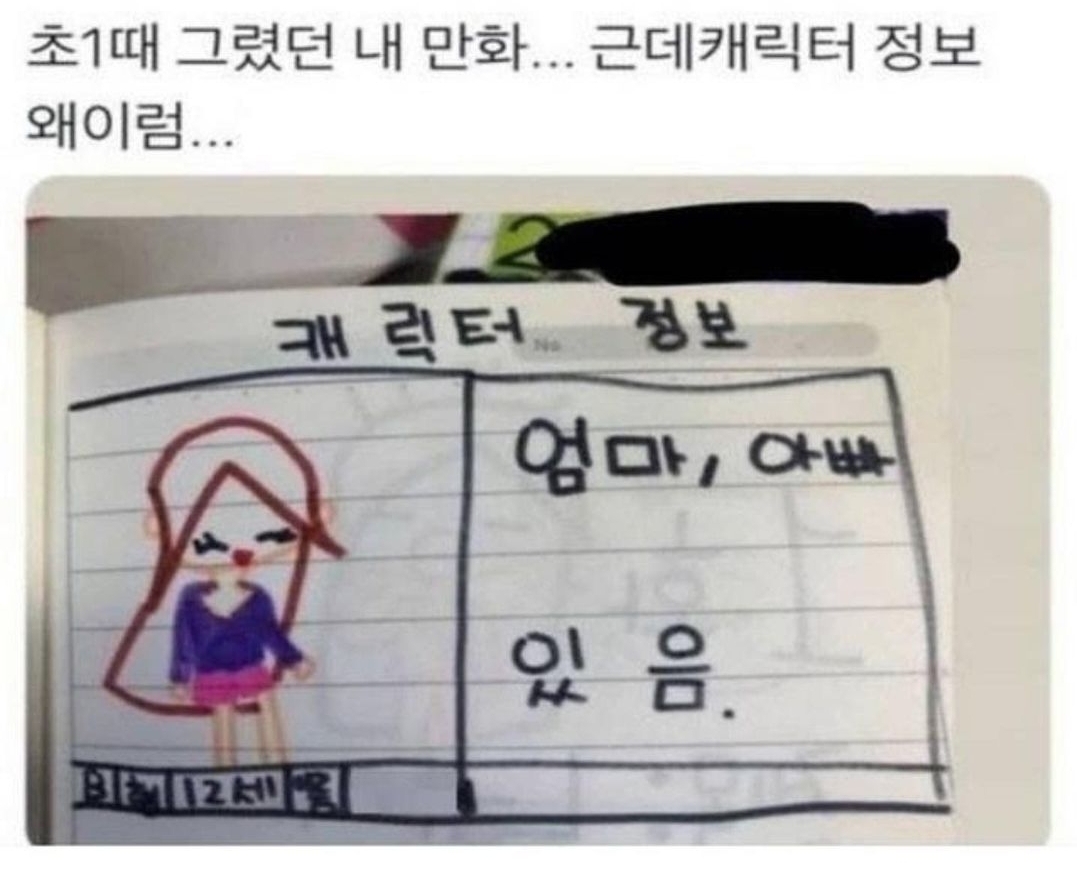 초1때 그렸던 내 만화... 근데캐릭터 정보
왜이럼...
2
캐릭터 정보
No.
엄마, 아빠
있음.
B 형 12세